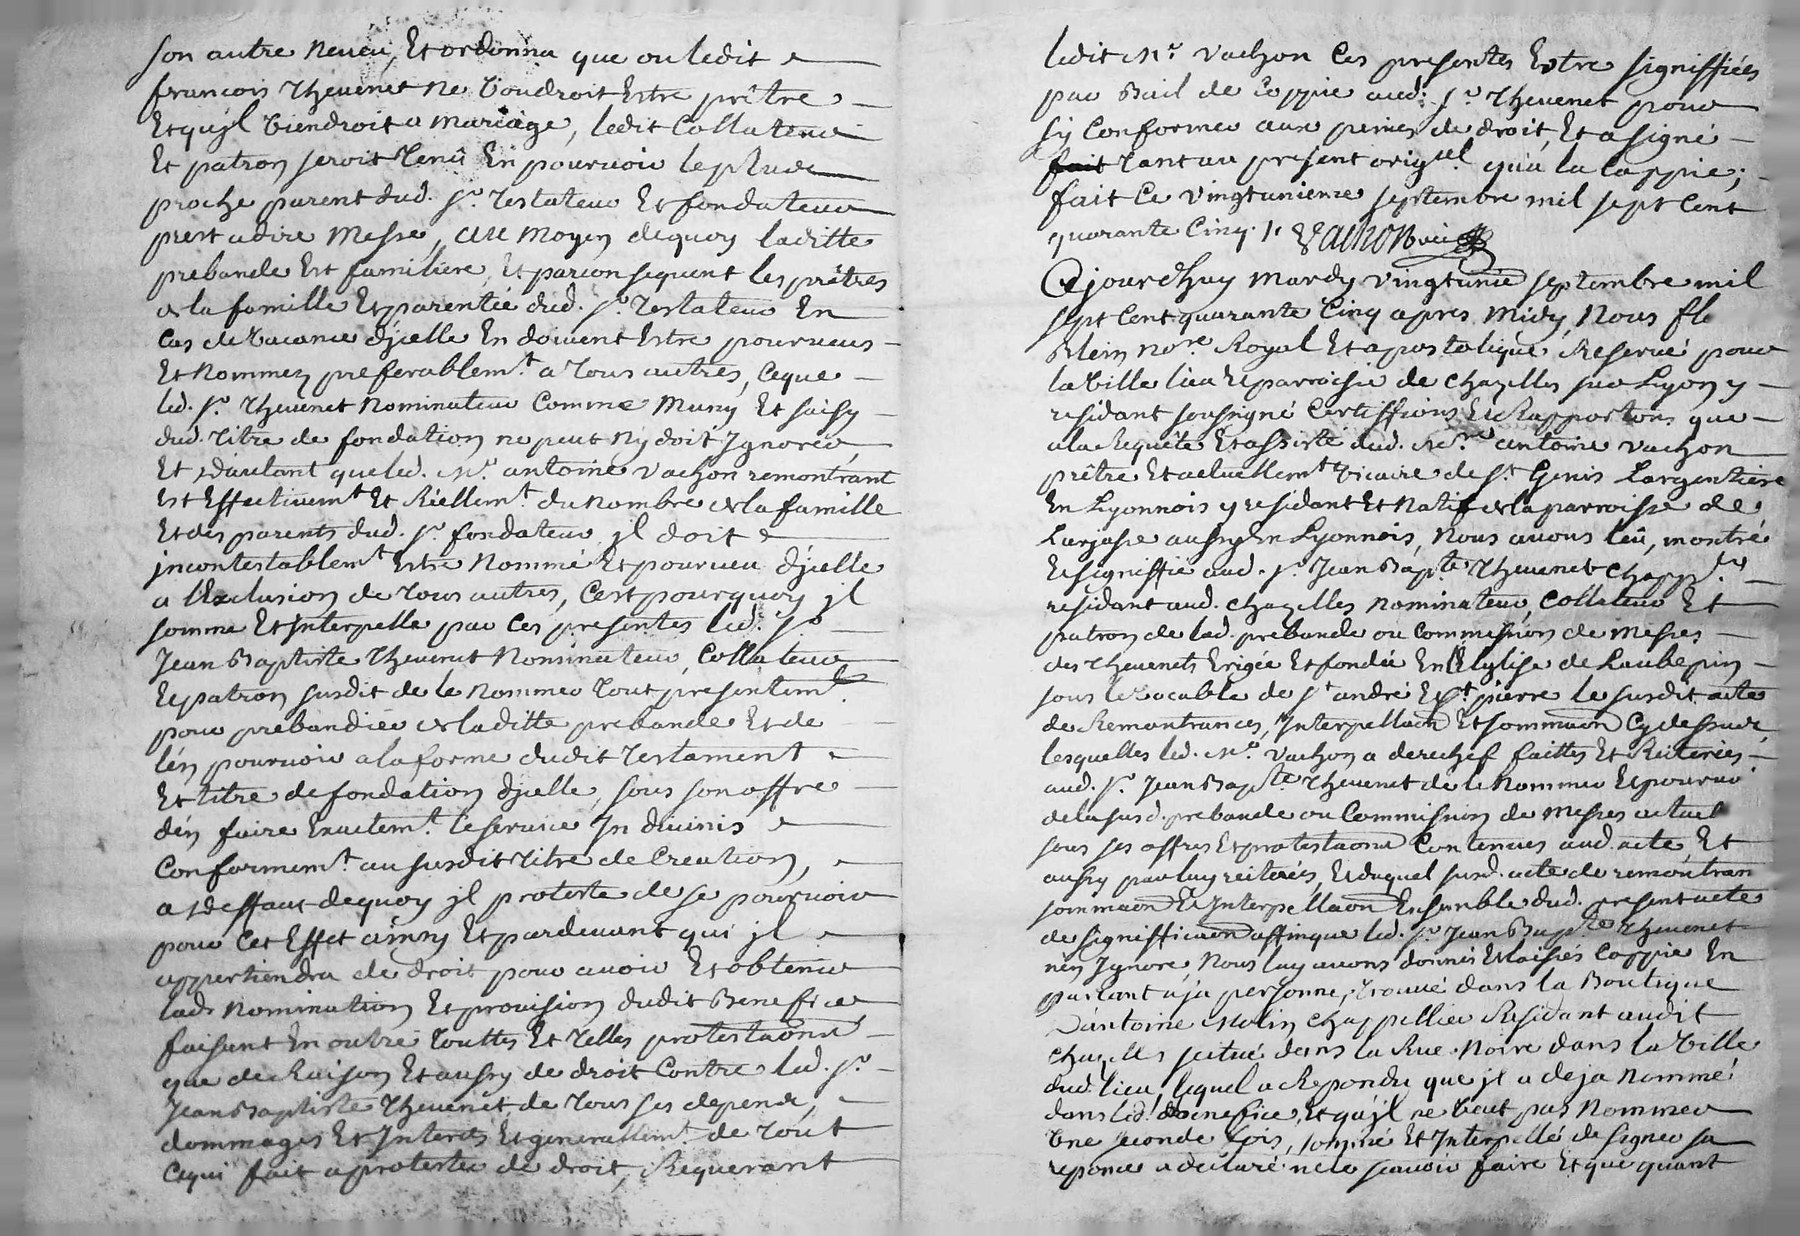 son autre neveu, Et ordonna que ou ledit
francois Thevenet ne voudroit Estre prêtre
Et qu'jl viendroit a mariage, ledit Collateur
Et patron seroit tenû En pourvoir le plus
proche parent dud. sr. Testateur Et fondateur
prest a dire Messe, au moyen de quoy laditte
prebande Est familiere, Et par consequent les prêtres
de la famille Et parentée dud. sr. Testateur En
Cas de vacance d'jcelle En doivent Estre pourveus
Et Nommez preferablemt. a tous autres, Ceque
led. sr. Thevenet Nominateur Comme Muny Et saisy
dud. titre de fondation ne peut ny doit Jgnorer,
Et d'autant que led. Mr. antoine Vachon remontrant
Est Effectivemt. Et Réellemt. du nombre de la famille
Et des parents dud. sr. fondateur jl doit
jncontestablemt. Estre Nommé Et pourveu d'jcelle
a l'Exclusion de tous autres, C'est pourquoy jl
somme Et Interpelle par Ces presentes led. sr.
Jean Baptiste Thevenet Nominateur, Collateur
Et patron susdit de le Nommer tout presentemt.
pour prebandier de laditte prebande Et de
l'en pourvoir a la forme dudit Testament
Et titre de fondation d'jcelle, sous son offre
d'en faire Exactemt. le service In divinis
Conformemt. au susdit titre de Creation,
a deffaut de quoy jl proteste de se pourvoir
pour Cet Effet ainsy Et pardevant qui jl
appartiendra de droit pour avoir Et obtenir
lade Nomination Et provision dudit Benefice,
faisant En outre touttes Et telles protestaons
que de Raison Et aussy de droit Contre led. sr.
Jean Baptiste Thevenet, de tous ses depens,
dommages Et Interets Et generallemt. de tout
Cequi fait a protester de droit, Requerant
ledit Mr. Vachon Ces presentes Estre signiffiées
par Bail de Coppie aud. sr. Thevenet pour
s'y Conformer aux peines de droit, Et a signé
fait tant au present origel qu'a la Coppie;
fait Ce vingtunieme septembre mil sept Cent
quarante Cinq. Vachon
Ajourd'huy mardy vingtunie septembre mil
sept Cent quarante Cinq apres Midy, Nous
Blein nore. Royal Et apostolique Reservé pour
la ville lieu Et parroisse de Chazelles sur Lyon y
residant soussigné Certiffions Et Rapportons que
a la Requête Et assisté dud. Mre antoine Vachon
prêtre Et actuellemt. vicaire de st. Genis Largentiere
En Lyonnois y residant Et Natif de la parroisse de
Larjasse aussy En Lyonnois, Nous avons leû, montré
Et signiffié aud. sr. Jean Bapte. Thevenet Chappr.
residant aud. Chazelles nominateur, Collateur Et
patron de lad. prebande ou Commission de Messes
des Thevenets Erigée Et fondée En l'Eglise de Laubepin
sous le vocable de st andré Et st. pierre le susdit acte
de Remontrances, Interpellaon Et sommaon Cydessus,
lesquelles led. Mr. Vachon a derechef faittes Et Reiterées
aud. sr. Jean Bapte. Thevenet de le Nommer Et pourvoir
de la susd. prebande ou Commission de Messes actuel
sous ses offres Et protestaons Contenues aud. acte, Et
aussy par luy reiterés, Et duquel susd. acte de remontran
sommaon Et Interpellaon Ensemble dud. present acte
de signifficaon affinque led. sr. Jean Bapte Thevenet
n'en Jgnore, Nous luy avons donnés Et laissés Coppie En
parlant a sa personne, trouvé dans la Boutique
D'antoine Molin Chappellier Residant audit
Chazelles scitué dans la Rue Noire dans la ville
dud. lieu, lequel a Repondu que jl a deja nommé
dans led. Benefice, Et qu'jl ne veut pas Nommer
Une seconde fois, sommé Et Interpellé de signer sa
reponce a declaré ne le sçavoir faire Et que quant